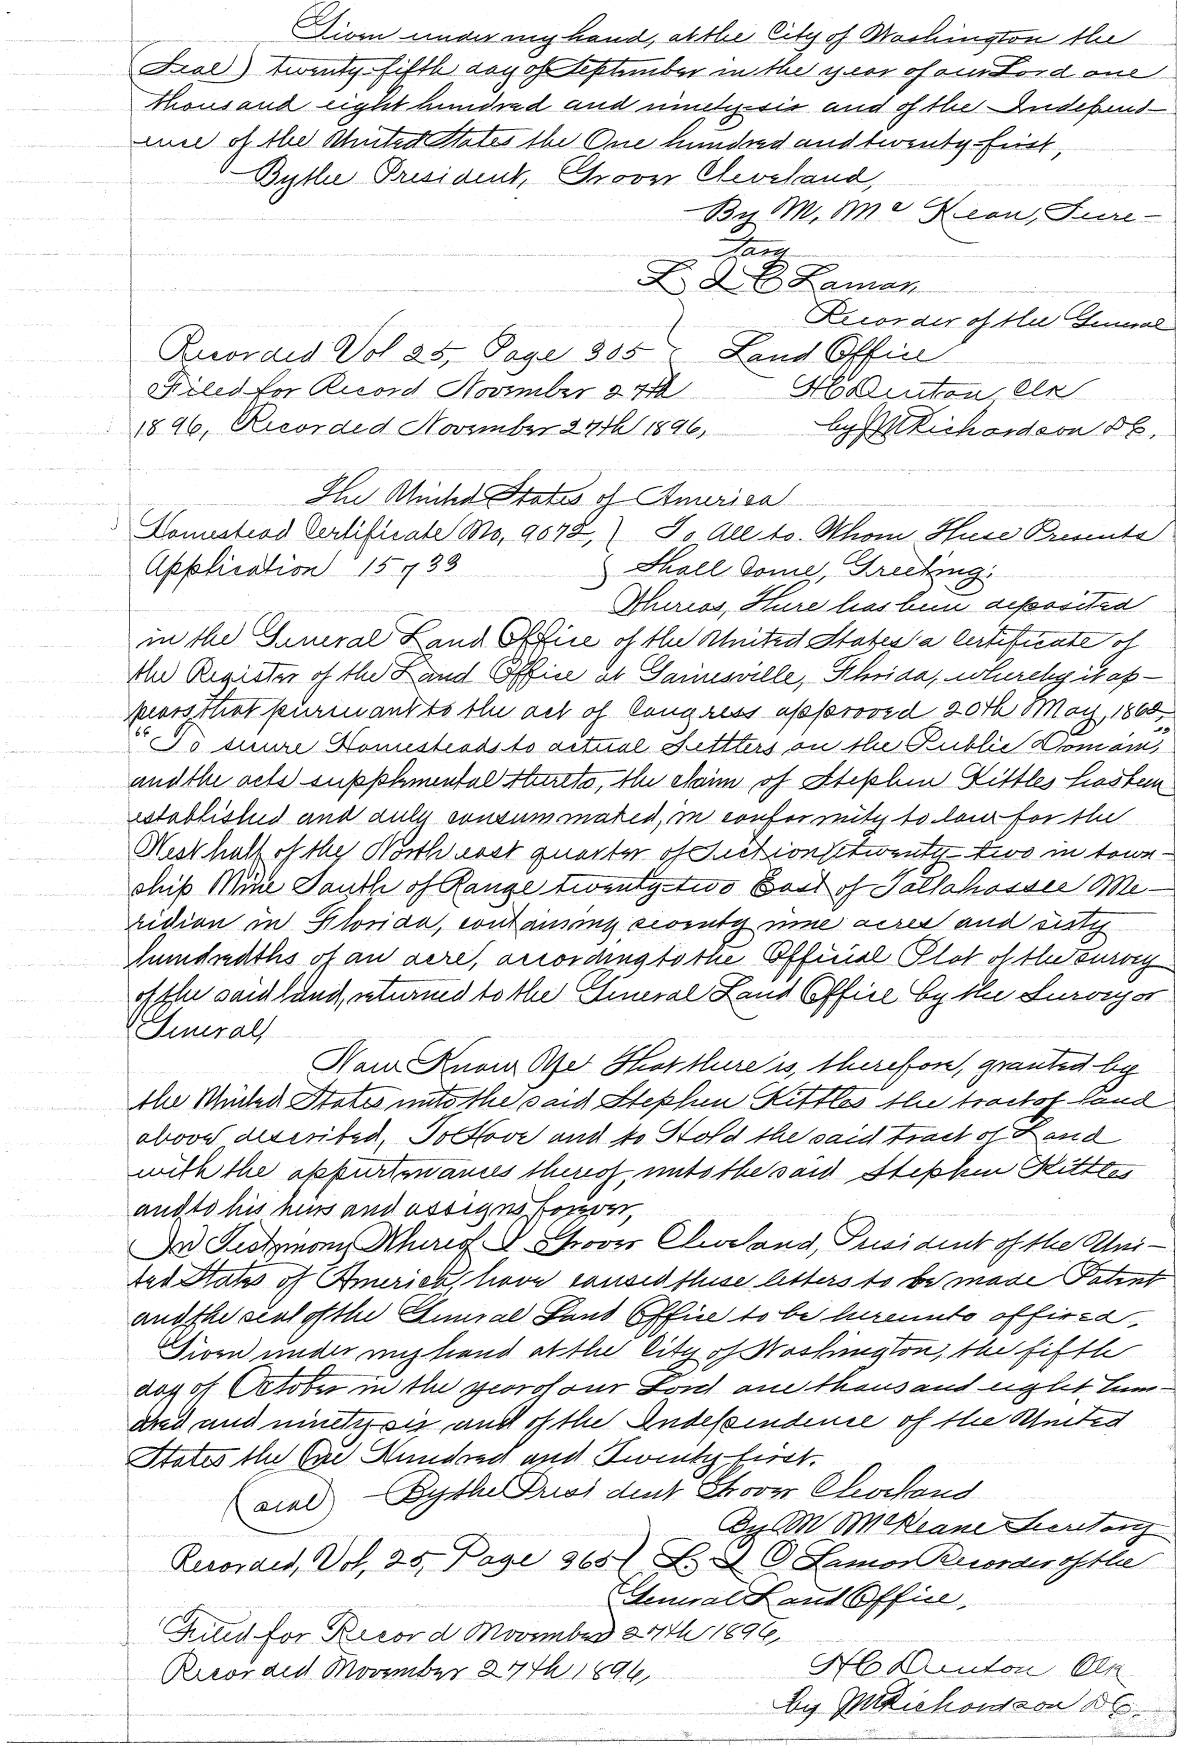 Given under my hand, at the City of Washington the
(Seal) twenty-fifth day of September in the year of our Lord one
thousand eight hundred and ninety-six and of the Independ-
ence of the United States the One hundred and twenty-first,
By the President, Grover Cleveland,
By M. McKean, Secre-
tary
L Q C Lamar,
Recorder of the General
Recorded Vol 25, Page 305 Land Office
Filed for Record November 27th H C Denton, Clk
1896, Recorded November 27th 1896, by M Richardson D C.
The United States of America
Homestead Certificate No, 9678, ) To All to Whom These Presents
Application 15733 ) Shall Come, Greeting:
Whereas, There has been deposited
in the General Land Office of the United States a Certificate of
the Register of the Land Office at Gainesville, Florida, whereby it ap-
pears that pursuant to the act of Congress approved 20th May, 1862,
"To secure Homesteads to actual Settlers on the Public Domain,"
and the acts supplemental thereto, the claim of Stephen Kittles has been
established and duly consummated, in conformity to law for the
West half of the North east quarter of Section twenty-two in town-
ship Nine South of Range twenty-two East of Tallahassee Me-
ridian in Florida, containing seventy nine acres and sixty
hundredths of an acre, according to the Official Plat of the survey
of the said land, returned to the General Land Office by the Surveyor
General,
Now Know Ye That there is, therefore, granted by
the United States unto the said Stephen Kittles the tract of land
above described, To Have and to Hold the said tract of Land
with the appurtenances thereof, unto the said Stephen Kittles
and to his heirs and assigns forever,
In Testimony Whereof I Grover Cleveland, President of the Uni-
ted States of America, have caused these letters to be made Patent
and the seal of the General Land Office to be hereunto affixed.
Given under my hand at the City of Washington, the fifth
day of October in the year of our Lord one thousand eight hun-
dred and ninety six and of the Independence of the United
States the One Hundred and Twenty first.
(seal) By the President Grover Cleveland
By M McKeane Secretary
Recorded, Vol, 25, Page 365 ( L. Q C Lamar Recorder of the
General Land Office,
Filed for Record November 27th 1896,
Recorded November 27th 1896, H C Denton Clk
by M Richardson D C.